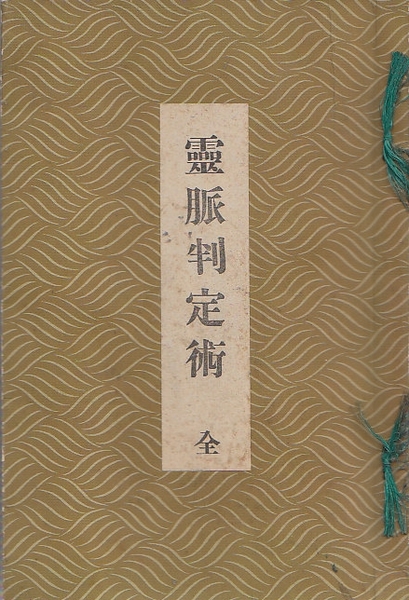 靈脈判定術 全